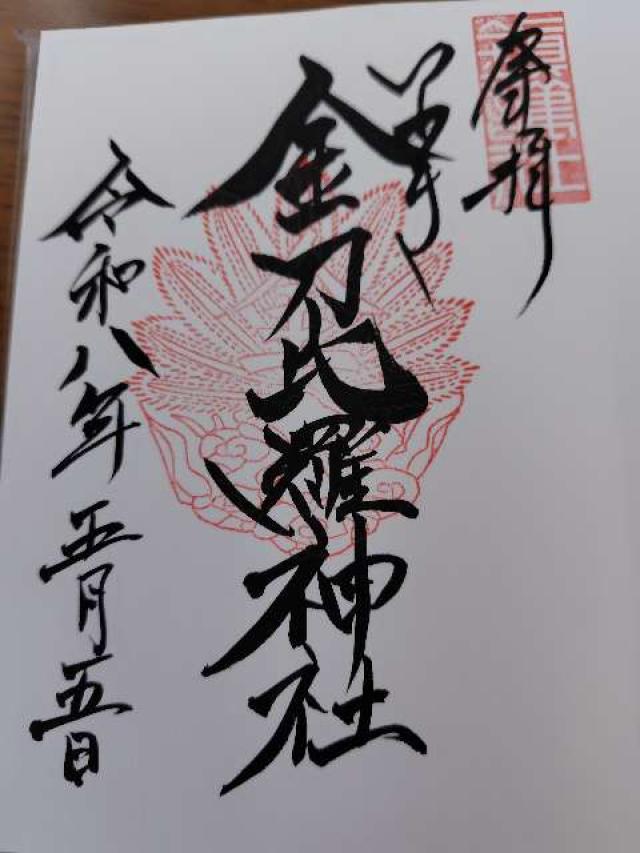 奉拝
金刀比羅神社
令和八年五月五日